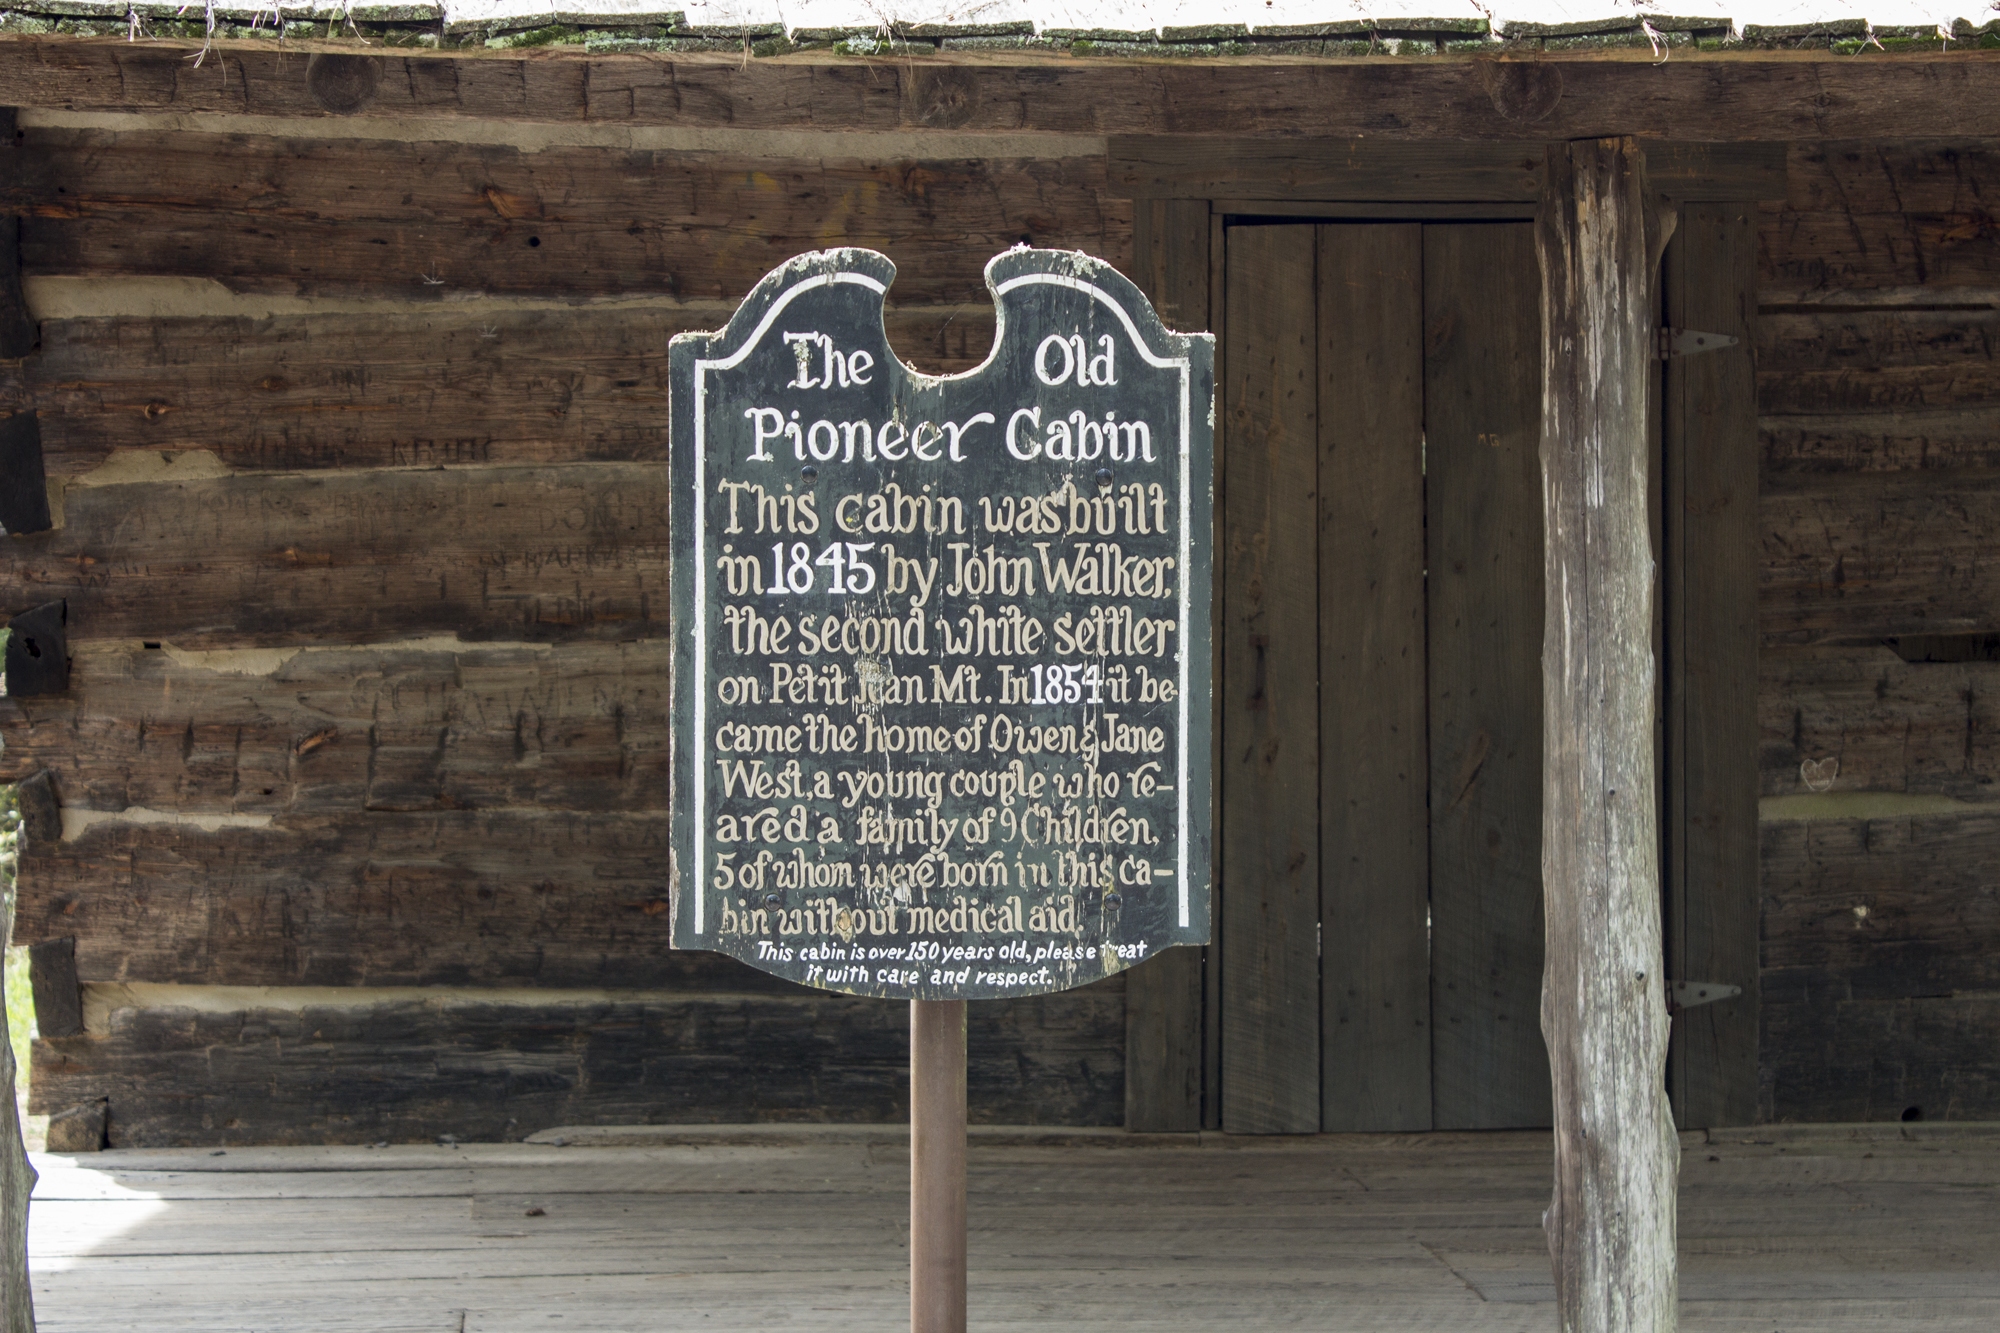 The Old
Pioneer Cabin
This cabin was built
in 1845 by John Walker,
the second white settler
on Petit Jean Mt. In 1854 it be-
came the home of Owen & Jane
West, a young couple who re-
ared a family of 9 Children,
5 of whom were born in this ca-
bin without medical aid.
This cabin is over 150 years old, please treat
it with care and respect.
MG